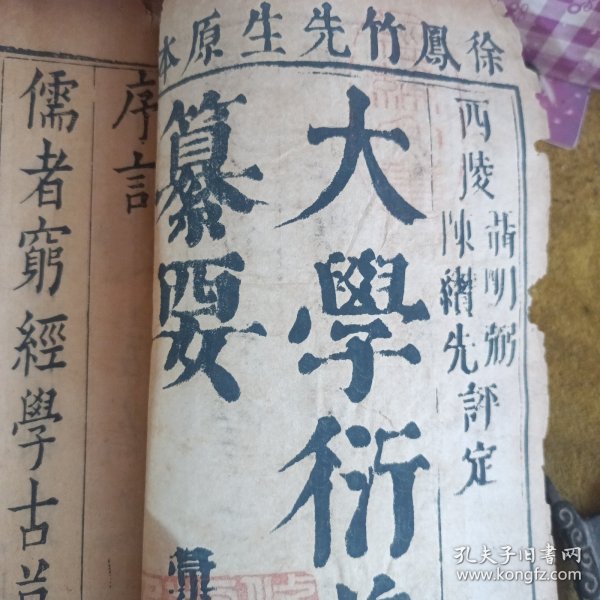 徐鳳竹先生原本
西陵
翁明弼
陳纘先評定
大學衍
纂要
序言
儒者窮經學古
孔夫子旧书网
www.kongfz.com